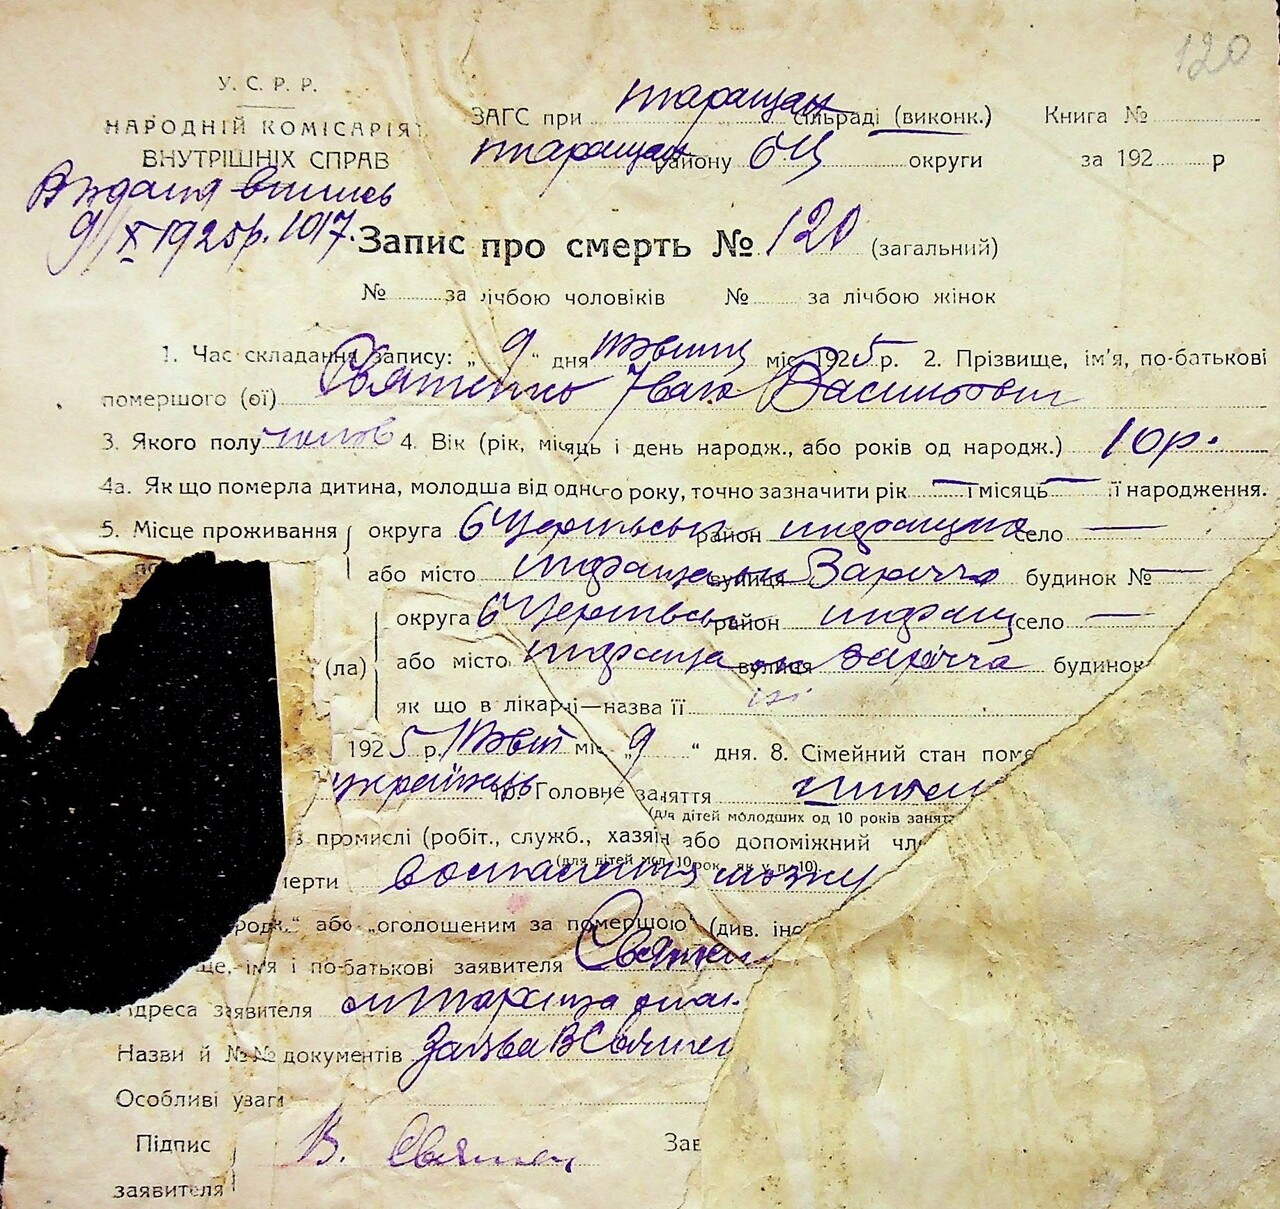 120
У. С. Р. Р.
НАРОДНІЙ КОМІСАРІЯТ
ВНУТРІШНІХ СПРАВ
ЗАГС при Таращан сільраді (виконк.) Книга №
Таращан району БЦ округи за 192 р
Видана випись
9/X 1925р. 1017.
Запис про смерть № 120 (загальний)
№ за лічбою чоловіків № за лічбою жінок
1. Час складання запису: „ 9 “ дня міс. 1925 р. 2. Прізвище, ім'я, по-батькові
помершого (ої) Святенко Іван Васильович
3. Якого полу чолов 4. Вік (рік, місяць і день народж., або років од народж.) 10р.
4а. Як що померла дитина, молодша від одного року, точно зазначити рік — і місяць — її народження.
5. Місце проживання округа район село —
або місто вулиця Заріччя будинок № —
округа район Таращ село —
(ла) або місто Тараща вулиця Заріччя будинок
як що в лікарні—назва її
1925 р. міс. „9 “ дня. 8. Сімейний стан поме
українець 10. Головне заняття
(для дітей молодших од 10 років занят
з промислі (робіт., служб., хазяїн або допоміжний чл
(для дітей мол. 10 рок. як у п. 10)
мерти воспаление мозку
родж.“ або „оголошеним за помершою“ (див. інс
ще, ім'я і по-батькові заявителя Святен
Адреса заявителя м Тараща
Назви й №№ документів Заява В Святен
Особливі уваги
Підпис В. Святен Зав
заявителя